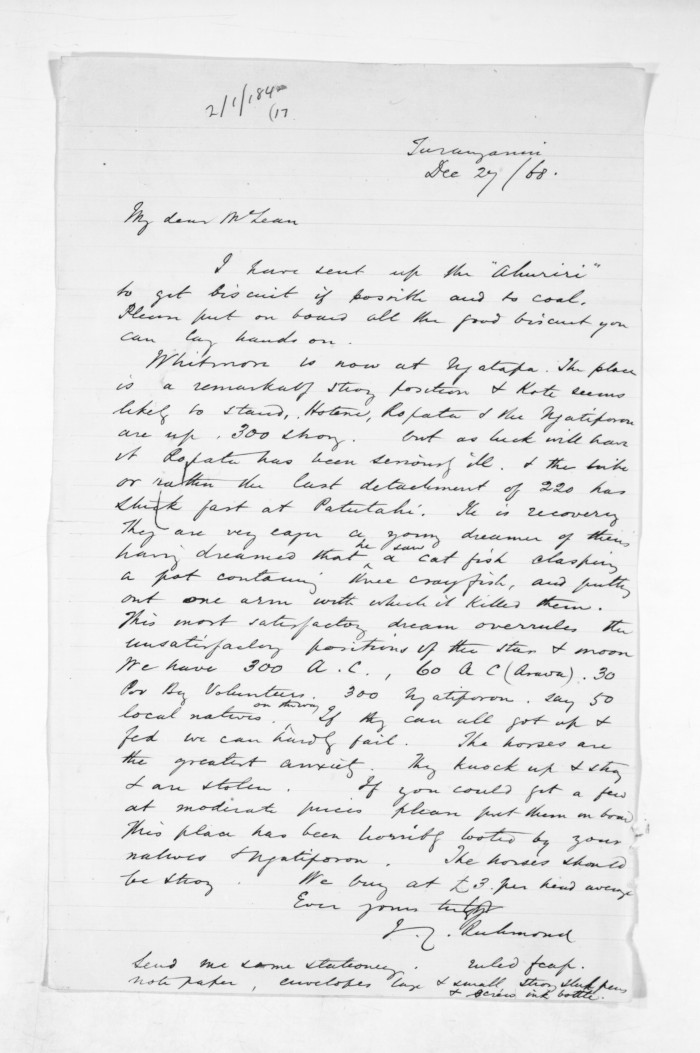 2/1/184
(17
Turanganui
Dec 27/68.
My dear McLean
I have sent up the "Ahuriri"
to get biscuit if possible and to coal.
Please put on board all the good biscuit you
can lay hands on.
Whitmore is now at Ngatapa. The place
is a remarkably strong position & Kote seems
likely to stand, Hotene, Ropata & the Ngatiporou
are up. 300 strong. but as luck will have
it Ropata has been seriously ill. & the tribe
or rather the last detachment of 220 has
stuck fast at Patutahi. He is recovering
They are very eager a young dreamer of theirs
having dreamed that he saw a cat fish clasping
a pot containing three crayfish, and putting
out one arm with which it killed them.
This most satisfactory dream overrules the
unsatisfactory positions of the star & moon
We have 300 A.C., 60 A C (Arawa). 30
Pov Bay Volunteers. 300 Ngatiporou. say 50
local natives. on the way If they can all got up &
fed we can hardly fail. The horses are
the greatest anxiety. They knock up & stray
& are stolen. If you could get a few
at moderate prices please put them on board
This place has been horribly looted by your
natives & Ngatiporou. The horses should
be strong. We buy at £3. per head average
Ever yours truly
J. C. Richmond
Send me some stationery. ruled fcap.
note paper, envelopes large & small, strong steel pens
& screw ink bottle.